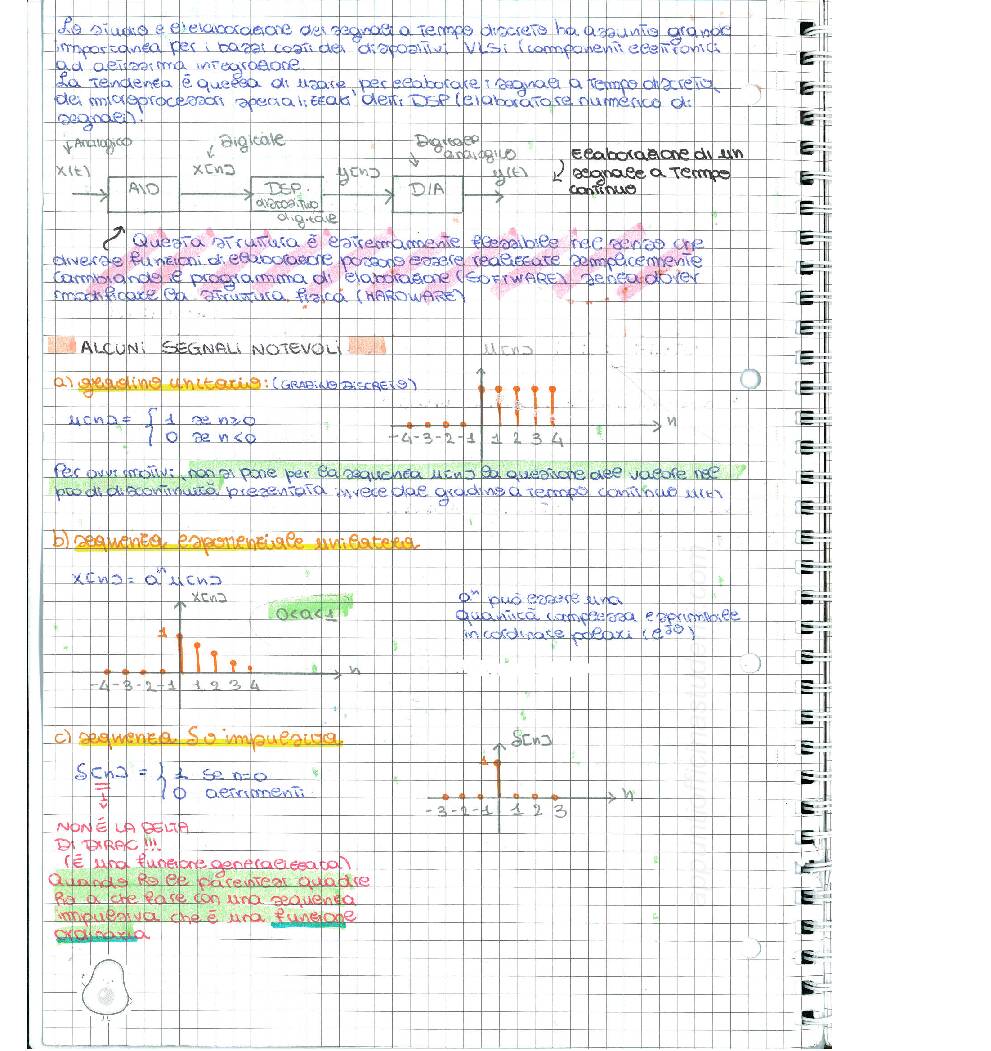 Lo studio e l'elaborazione dei segnali a tempo discreto ha assunto grande
importanza per i bassi costi dei dispositivi VLSI (componenti elettronici
ad altissima integrazione.
La tendenza è quella di usare, per elaborare i segnali a tempo discreto,
dei microprocessori specializzati, detti DSP (elaboratore numerico di
segnali).
↓ Analogico
Digitale
Digitale
analogico
x(t)
x[n]
y[n]
y(t)
A/D
DSP.
dispositivo
digitale
D/A
Elaborazione di un
segnale a tempo
continuo
Questa struttura è estremamente flessibile nel senso che
diverse funzioni di elaborazione possono essere realizzate semplicemente
cambiando il programma di elaborazione (SOFTWARE) senza dover
modificare la struttura fisica (HARDWARE)
ALCUNI SEGNALI NOTEVOLI
u[n]
a) gradino unitario: (GRADINO DISCRETO)
u[n] = { 1 se n≥0
0 se n<0
-4 -3 -2 -1 1 2 3 4
n
Per ovvi motivi, non si pone per la sequenza u[n] la questione del valore nel
pto di discontinuità presentata invece dal gradino a tempo continuo u(t)
b) sequenza esponenziale unilatera
x[n] = aⁿ u[n]
x[n]
0<a<1
1
-4 -3 -2 -1 1 2 3 4
n
aⁿ può essere una
quantità complessa esprimibile
in cordinate polari (e^jθ)
c) sequenza δ o impulsiva
δ[n] = { 1 se n=0
0 altrimenti
δ[n]
1
-3 -2 -1 1 2 3
n
NON È LA DELTA
DI DIRAC !!!
(È una funzione generalizzata)
Quando ho le parentesi quadre
ho a che fare con una sequenza
impulsiva che è una funzione
ordinaria